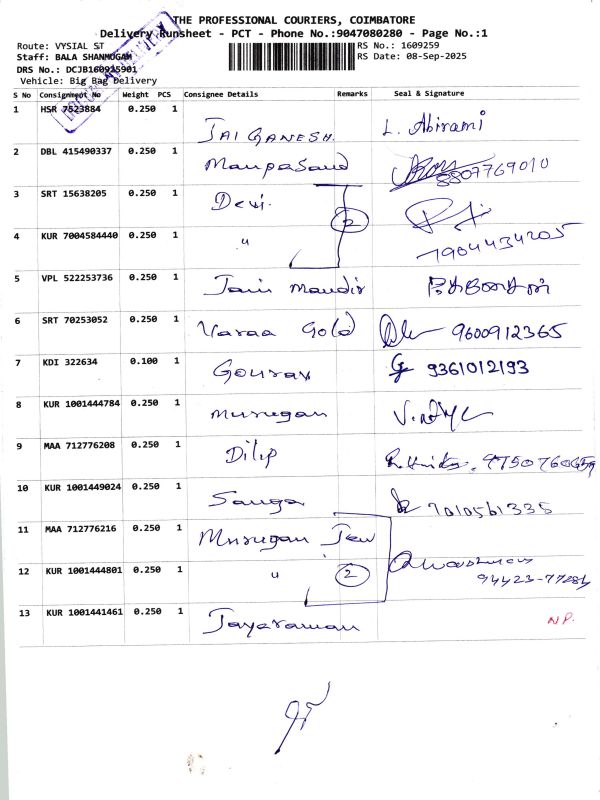 THE PROFESSIONAL COURIERS, COIMBATORE
Delivery Runsheet - PCT - Phone No.:9047080280 - Page No.:1
Route: VYSIAL ST RS No.: 1609259
Staff: BALA SHANMUGAM RS Date: 08-Sep-2025
DRS No.: DCJB160925901
Vehicle: Big Bag Delivery
S No Consignment No Weight PCS Consignee Details Remarks Seal & Signature
1 HSR 7523884 0.250 1 JAI GANESH. L. Abirami
2 DBL 415490337 0.250 1 Manpasand 8807769010
3 SRT 15638205 0.250 1 Devi.
2
4 KUR 7004584440 0.250 1 " 7904434205
5 VPL 522253736 0.250 1 Jain Mandir
6 SRT 70253052 0.250 1 Varaa Gold 9600912365
7 KDI 322634 0.100 1 Gourav 9361012193
8 KUR 1001444784 0.250 1 Murugan
9 MAA 712776208 0.250 1 Dilip
10 KUR 1001449024 0.250 1 Sanga 7010561335
11 MAA 712776216 0.250 1 Murugan Jew
12 KUR 1001444801 0.250 1 " 2 94423-77284
13 KUR 1001441461 0.250 1 Jayaraman NP.